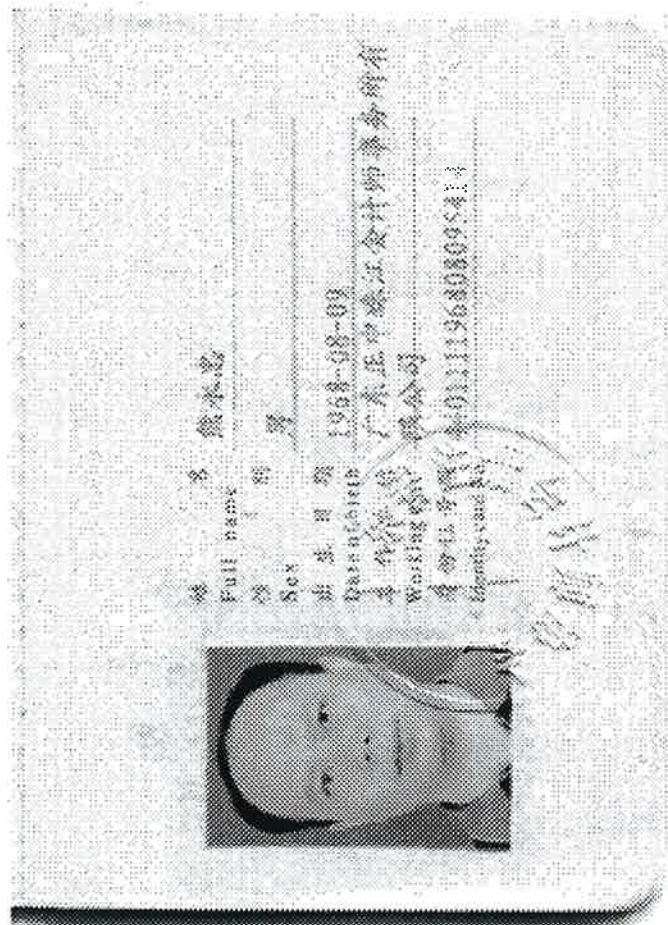 姓 名 熊永忠
Full name
性 别 男
Sex
出 生 日 期 1968-08-09
Date of birth
工 作 单 位 广东正中珠江会计师事务所有
限公司
Working unit
身 份 证 号 码
Identity card No.